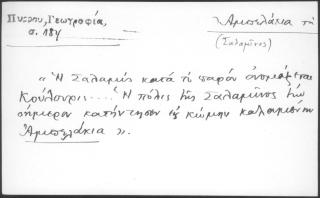 Πύρρου, Γεωγραφία,
σ. 184
Ἀμπελάκια τὰ
(Σαλαμῖνος)
« Ἡ Σαλαμὶς κατὰ τὸ παρὸν ὀνομάζεται
Κούλουρις... Ἡ πόλις τῆς Σαλαμῖνος
σήμερον κατήντησεν εἰς κώμην καλουμένην
Ἀμπελάκια ».